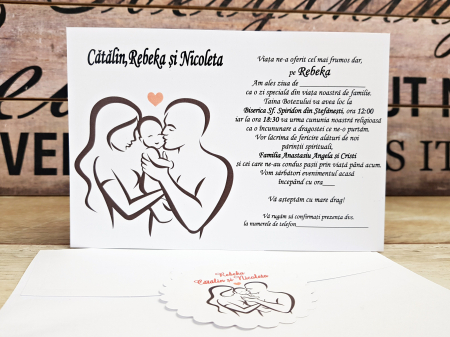 Cătălin,Rebeka și Nicoleta
Viața ne-a oferit cel mai frumos dar,
pe Rebeka
Am ales ziua de
ca o zi specială din viața noastră de familie.
Taina Botezului va avea loc la
Biserica Sf. Spiridon din Ștefănești, ora 12:00
iar la ora 18:30 va urma cununia noastră religioasă
ca o încununare a dragostei ce ne-o purtăm.
Vor lăcrima de fericire alături de noi
părinții spirituali,
Familia Anastasiu Angela și Cristi
și cei care ne-au condus pașii prin viață până acum.
Vom sărbători evenimentul acasă
începând cu ora
Vă așteptăm cu mare drag!
Vă rugăm să confirmați prezența dvs.
la numerele de telefon
Rebeka
Cătălin și Nicoleta